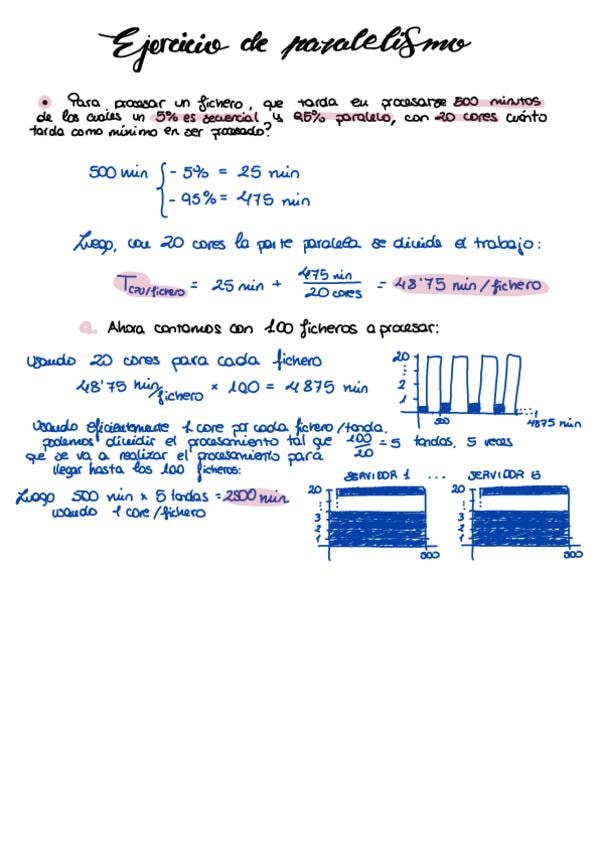 Ejercicio de paralelismo
• Para procesar un fichero, que tarda en procesarse 500 minutos
de los cuales un 5% es secuencial y 95% paralelo, con 20 cores cuánto
tarda como mínimo en ser procesado?
500 min { - 5% = 25 min
- 95% = 475 min
Luego, con 20 cores la parte paralela se divide el trabajo:
T CPU/fichero = 25 min + 475 min / 20 cores = 48'75 min/fichero
a. Ahora contamos con 100 ficheros a procesar:
Usando 20 cores para cada fichero
48'75 min/fichero × 100 = 4875 min
20
⋮
2
1
500
4875 min
Usando eficientemente 1 core por cada fichero/tanda,
podemos dividir el procesamiento tal que 100/20 = 5 tandas. 5 veces
que se va a realizar el procesamiento para
llegar hasta los 100 ficheros:
Luego 500 min × 5 tandas = 2500 min
usando 1 core/fichero
SERVIDOR 1 ... SERVIDOR 5
20
⋮
3
2
1
500
20
⋮
3
2
1
500